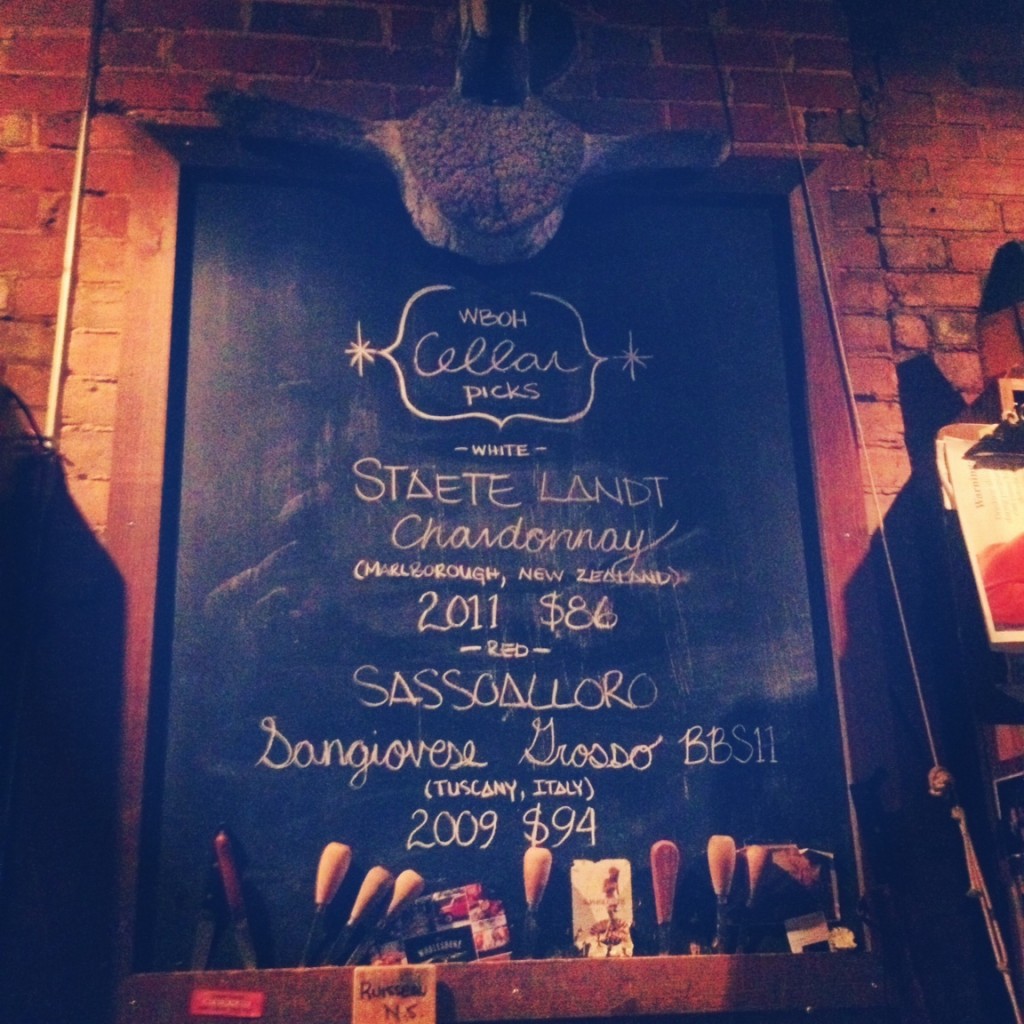 WBOH
Cellar
PICKS
- WHITE -
STAETE LANDT
Chardonnay
(MARLBOROUGH, NEW ZEALAND)
2011 $86
- RED -
SASSOALLORO
Sangiovese Grosso BBS11
(TUSCANY, ITALY)
2009 $94
RUISSEAU
N.S.
Warning